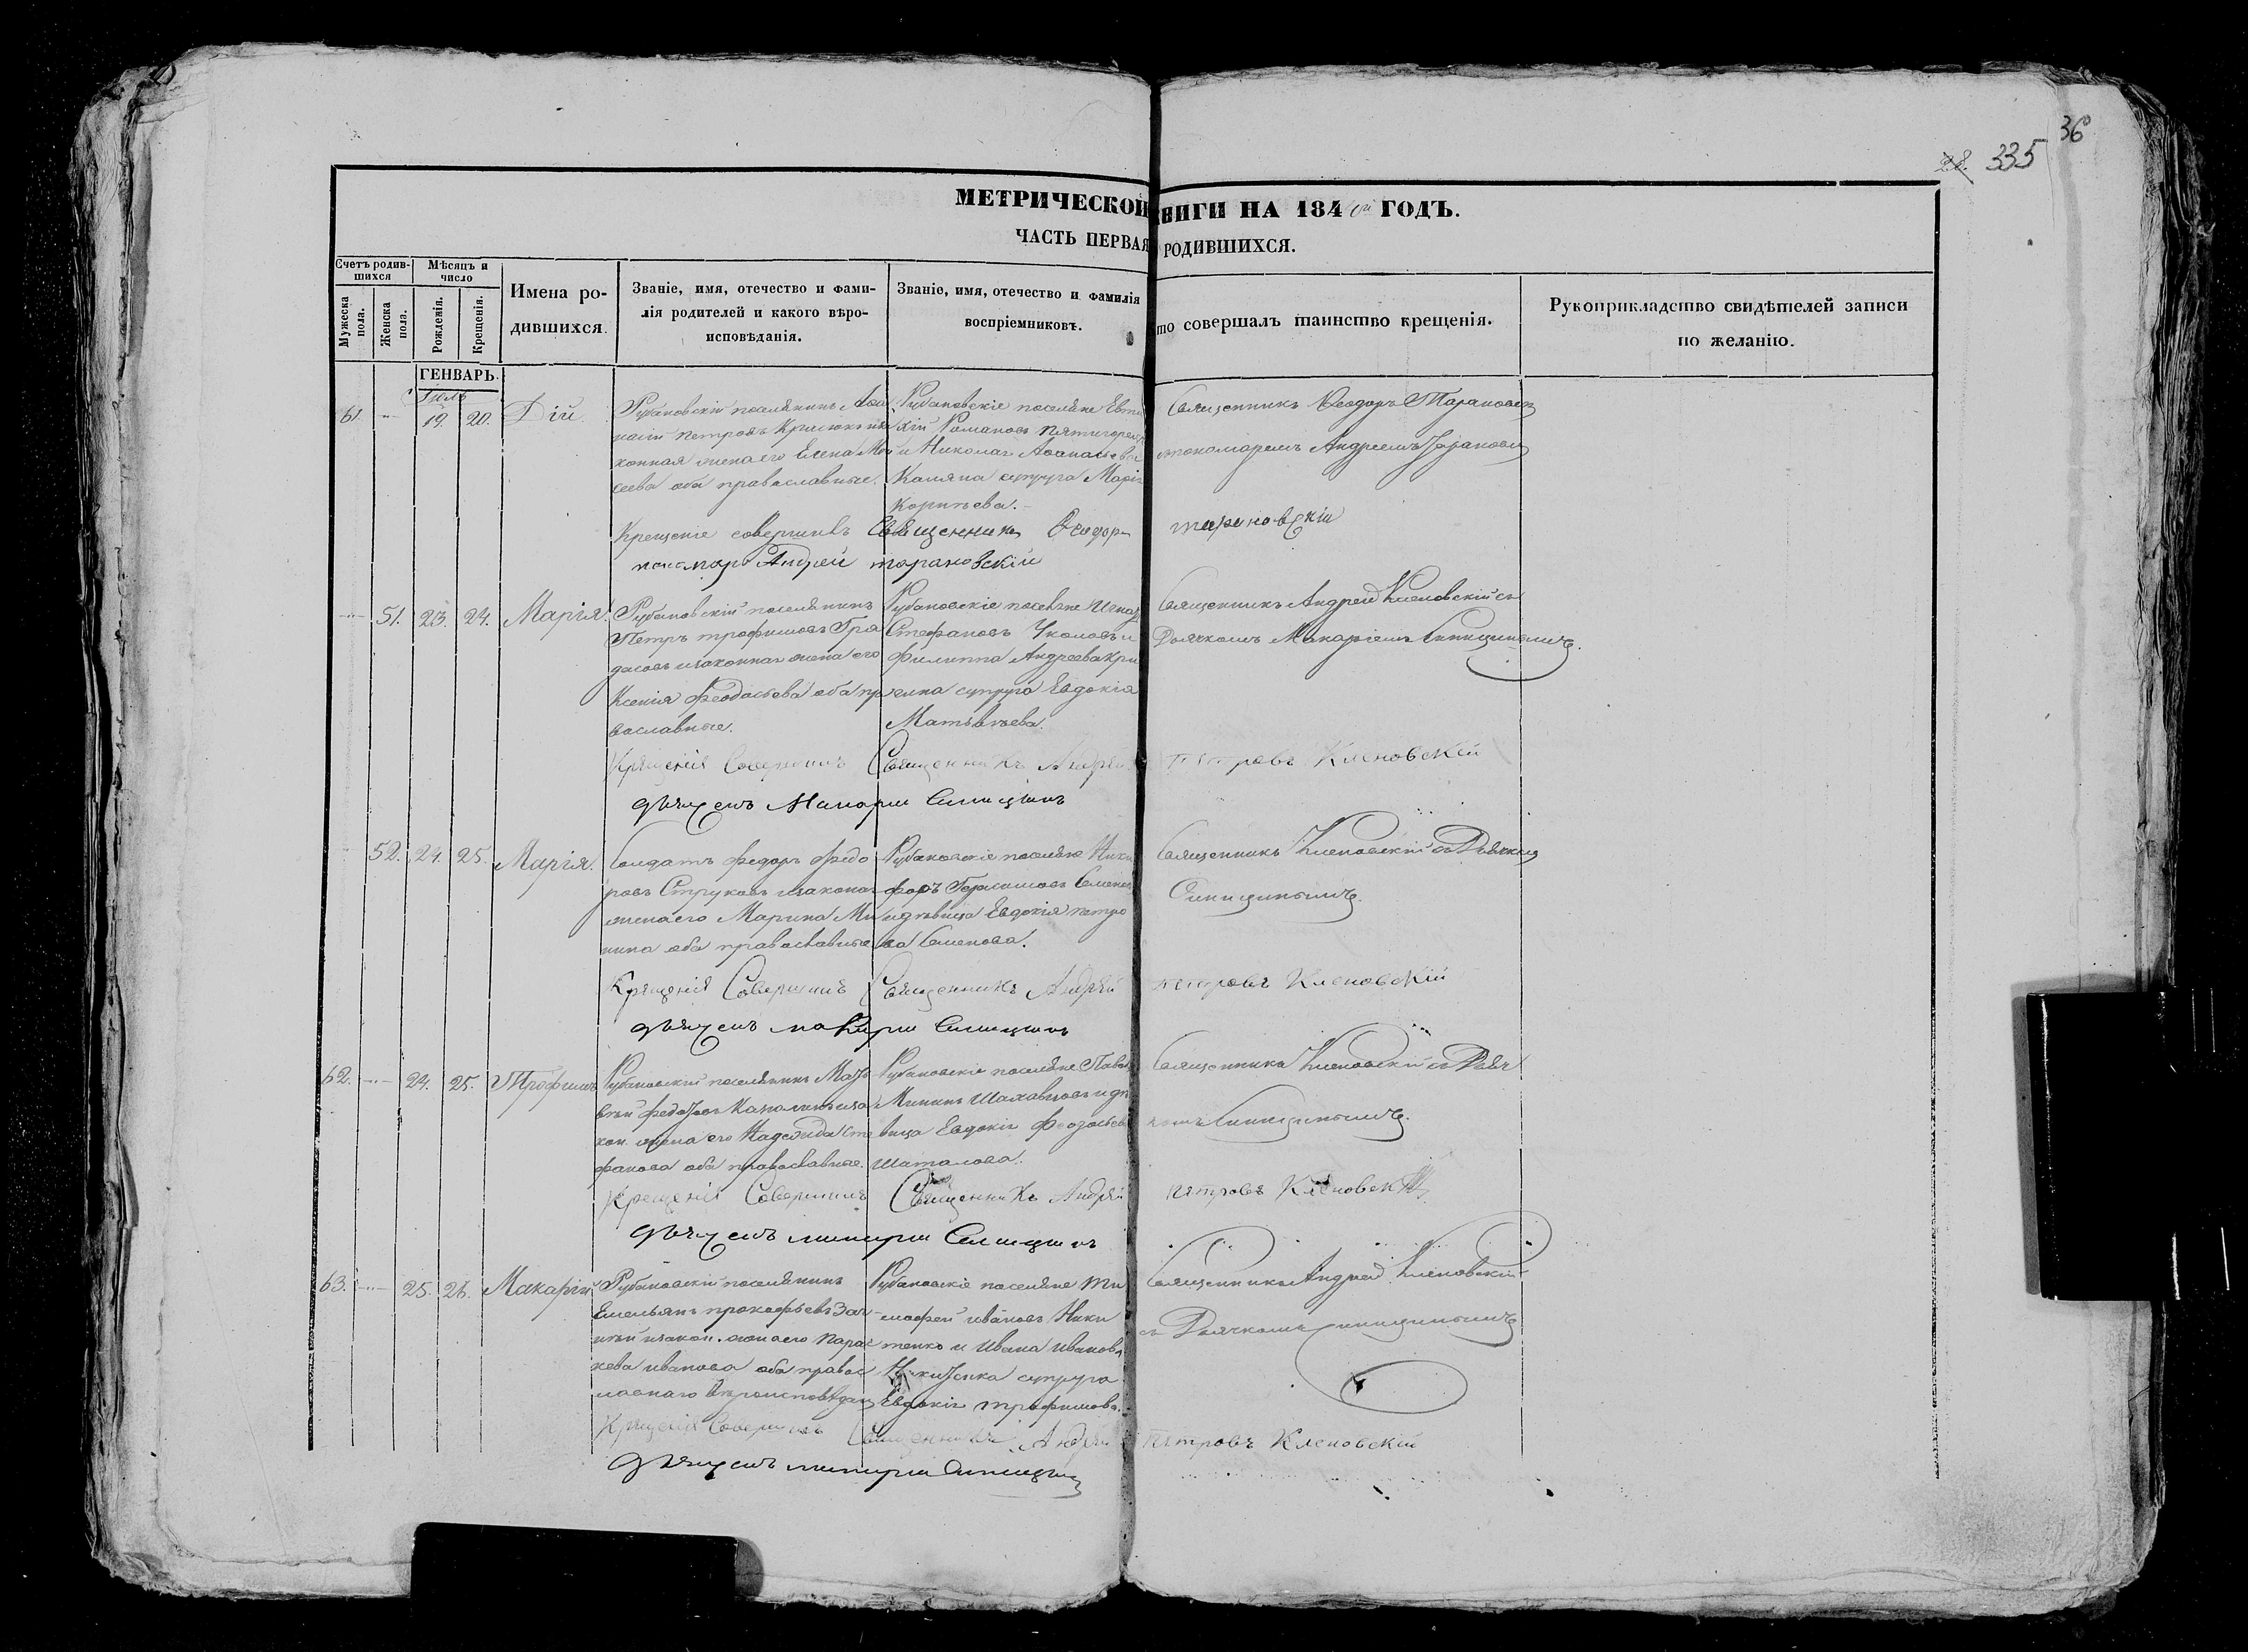 36
28. 335
МЕТРИЧЕСКОЙ КНИГИ НА 184 ГОДЪ.
ЧАСТЬ ПЕРВАЯ РОДИВШИХСЯ.
Счетъ родившихся
Мужеска пола.
Женска пола.
Мѣсяцъ и число
Рожденія.
Крещенія.
Имена родившихся.
Званіе, имя, отечество и фамилія родителей и какого вѣроисповѣданія.
Званіе, имя, отечество и фамилія воспріемниковъ.
то совершалъ таинство крещенія.
Рукоприкладство свидѣтелей записи по желанію.
ГЕНВАРЬ.
Іюль
61. 19. 20. Дій
Рубановскій поселянинъ Аѳа
насій Петровъ
конная жена его Елена Мои
сеева оба православные.
Рубановскіе поселяне Евти
хій Романовъ
и Николая Аѳанасьева
супруга Марія
Священникъ Ѳеодоръ Тарановскій
пономаремъ Андреемъ Таранов
Крещеніе совершилъ Священникъ Ѳеодоръ Тарановскій
пономарь Андрей тарановскій
51. 23. 24. Марія.
Рубановскій поселянинъ
Петръ трофимовъ Гри
и законная жена его
Ксенія Феодосьева оба пра
вославные.
Рубановскіе поселяне
Стефановъ и
Филиппа Андреева Кри
супруга Евдокія
Матвѣева.
Священникъ Андрей Кленовскій съ
Дьячкомъ Макаріемъ Синицинымъ.
Крященія Совершилъ Священникъ Андрей Петровъ Кленовскій
дьячекъ Макарій Синицинъ
52. 24. 25. Марія.
Солдатъ Федоръ Федо
ровъ Струковъ и законая
жена его Марина Ми
нина оба православные
Рубановскіе поселяне Ники
форъ Герасимовъ Семенов
и дѣвица Евдокія петро
ва Семенова.
Священникъ Кленовскій съ Дьячкомъ
Синицинымъ.
Крященія Совершилъ Священникъ Андрей Петровъ Кленовскій
дьячекъ макарій Синицинъ
62. 24. 25. Трофимъ
Рубановскій поселянинъ Мат
вѣй федоровъ
кон. жена его Надежда Сте
фанова оба православные.
Рубановскіе поселяне Павелъ
Мининъ и дѣ
вица Евдокія Феодосьев
Шаталова.
Священникъ Кленовскій съ Дьяч
комъ Синицинымъ.
Крещенія Совершилъ Священникъ Андрей Петровъ Кленовскій
дьячекъ макарій Синицинъ
63. 25. 26. Макарій
Рубановскій поселянинъ
Емельянъ прокофьевъ
и закон. жена его Парас
кева иванова оба правос
лавнаго вѣроисповѣдан
Рубановскіе поселяне Ти
мофей ивановъ Ники
тенко и Ивана Иванова
Никитенка супруга
Евдокія трофимова.
Священникъ Андрей Кленовскій
съ Дьячкомъ Синицинымъ
Крященія Совершилъ Священникъ Андрей Петровъ Кленовскій
дьячекъ макарій Синицинъ